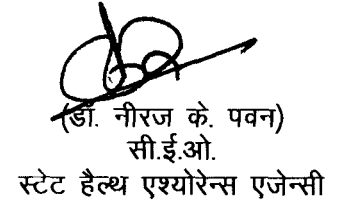 (डॉ. नीरज के. पवन)
सी.ई.ओ.
स्टेट हैल्थ एश्योरेन्स एजेन्सी